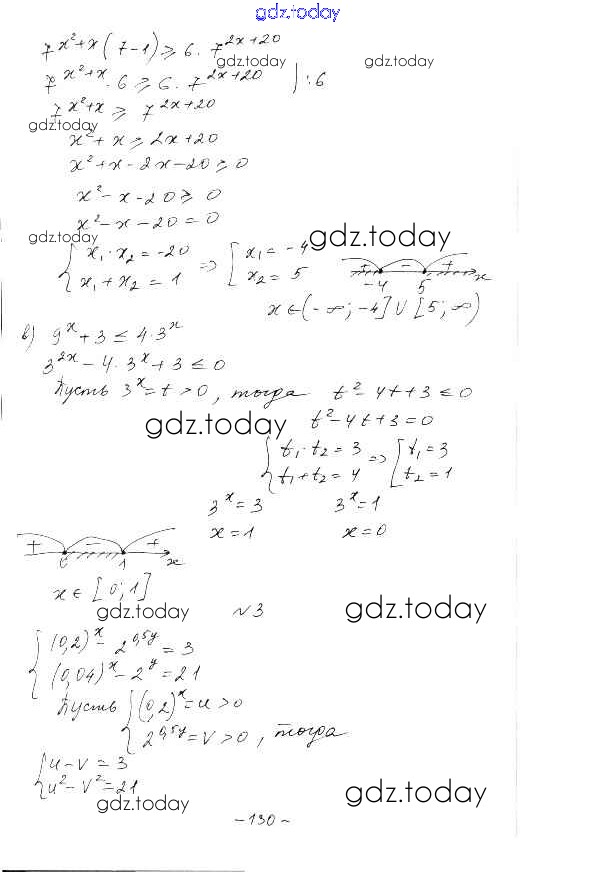 gdz.today
7^{x²+x}(7-1) ≥ 6·7^{2x+20}
gdz.today gdz.today
7^{x²+x}·6 ≥ 6·7^{2x+20} ) :6
7^{x²+x} ≥ 7^{2x+20}
gdz.today
x²+x ≥ 2x+20
x²+x-2x-20 ≥ 0
x²-x-20 ≥ 0
x²-x-20=0
gdz.today gdz.today
{ x₁·x₂=-20 => [ x₁=-4
x₁+x₂=1 x₂=5
+ - + x
-4 5
x∈(-∞;-4]∪[5;∞)
в) 9^x+3 ≤ 4·3^x
3^{2x}-4·3^x+3 ≤ 0
Пусть 3^x=t>0, тогда t²-4t+3 ≤ 0
gdz.today t²-4t+3=0
{ t₁·t₂=3 => [ t₁=3
t₁+t₂=4 t₂=1
3^x=3 3^x=1
x=1 x=0
+ - + x
0 1
x∈[0;1]
gdz.today №3 gdz.today
{ (0,2)^x-2^{0,5y}=3
(0,04)^x-2^y=21
Пусть { (0,2)^x=u>0
2^{0,5y}=v>0, тогда
{ u-v=3
u²-v²=21
gdz.today gdz.today
-130-